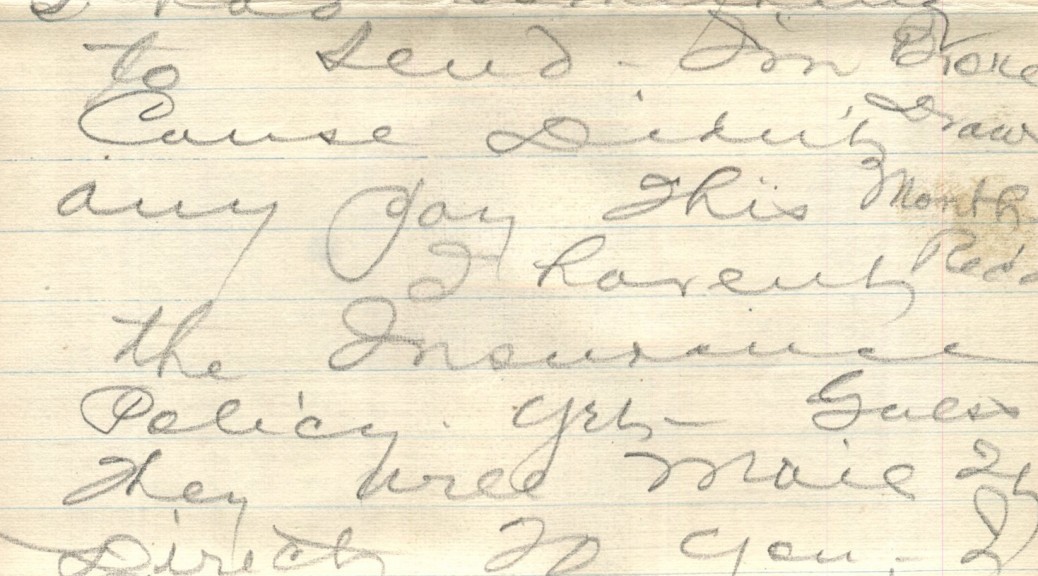 I had something
to send - I'm Broke
Cause Didn't Draw
any pay This Month
I havent Rec'd
the Insurance
Policy. yet - Guess
They will Mail It
Direct To you. - I